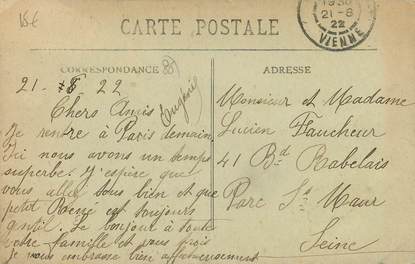 15€
CARTE POSTALE
19 30
21-8
22
VIENNE
CORRESPONDANCE
ADRESSE
21. 8. 22
Chers Amis
Eugénie
Je rentre à Paris demain
Ici nous avons un temps
superbe. J'espère que
vous allez tous bien et que
petit René est toujours
gentil. Le bonjour à toute
votre famille et vous
Je vous embrasse bien affectueusement
Monsieur et Madame
Lucien Faucheur
41 Bd Rabelais
Parc St Maur
Seine